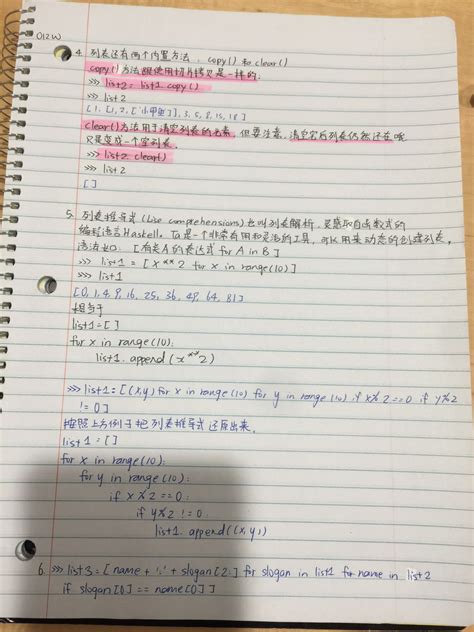 012W
4. 列表还有两个内置方法，copy()和clear()
copy()方法跟使用切片拷贝是一样的：
>>> list2 = list1.copy()
>>> list2
[1, [1, 2, ['小甲鱼']], 3, 5, 8, 15, 18]
clear()方法用于清空列表的元素，但要注意，清空完后列表仍然还在哦
只是变成一个空列表。
>>> list2.clear()
>>> list2
[]
5. 列表推导式(List comprehensions)也叫列表解析，灵感取自函数式的
编程语言Haskell。Ta是一个非常有用和灵活的工具，可以用来动态的创建列表，
语法如：[有关A的表达式 for A in B]
>>> list1 = [x**2 for x in range(10)]
>>> list1
[0, 1, 4, 9, 16, 25, 36, 49, 64, 81]
相当于
list1 = []
for x in range(10):
list1.append(x**2)
>>> list1 = [(x,y) for x in range(10) for y in range(10) if x%2==0 if y%2
!= 0]
按照上方例子把列表推导式还原出来。
list1 = []
for x in range(10):
for y in range(10):
if x%2 == 0:
if y%2 != 0:
list1.append((x,y))
6. >>> list3 = [name + ':' + slogan[2:] for slogan in list1 for name in list2
if slogan[0] == name[0]]